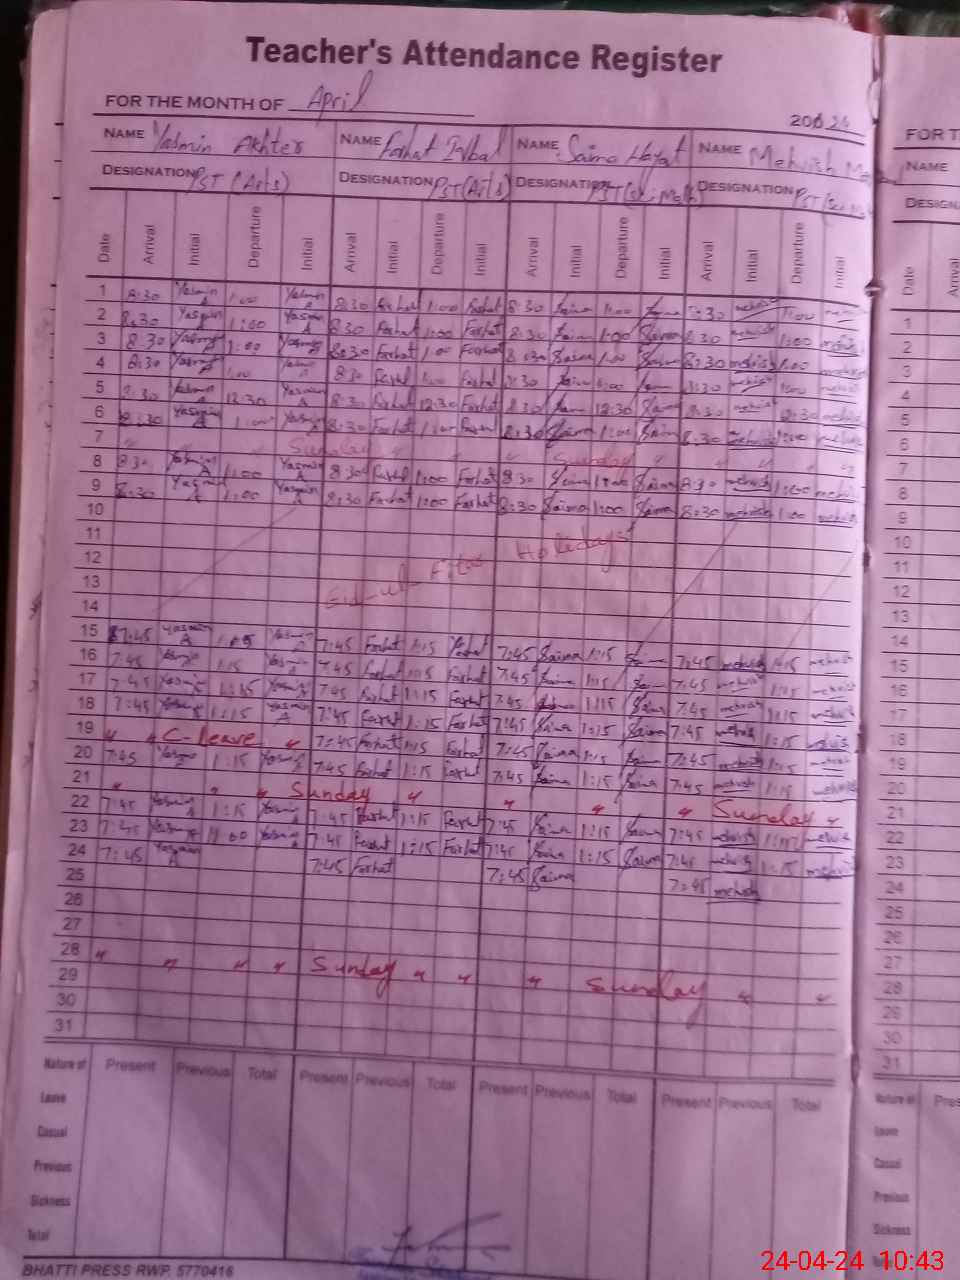 Teacher's Attendance Register
FOR THE MONTH OF April
2024
FOR T
NAME Yasmin Akhter NAME Farhat Iqbal NAME Saima Hayat NAME Mehvish
NAME
DESIGNATION PST (Arts) DESIGNATION PST (Arts) DESIGNATION PST (Sc. Math) DESIGNATION PST
DESIGN
Date Arrival Initial Departure Initial Arrival Initial Departure Initial Arrival Initial Departure Initial Arrival Initial Departure Initial
Date Arrival
1 8:30 Yasmin A 1:00 Yasmin A 8:30 Farhat 1:00 Farhat 8:30 Saima 1:00 Saima 8:30 mehvish 1:00
2 8:30 Yasmin A 1:00 Yasmin A 8:30 Farhat 1:00 Farhat 8:30 Saima 1:00 Saima 8:30 mehvish 1:00 mehvish
3 8:30 Yasmin A 1:00 Yasmin A 8:30 Farhat 1:00 Farhat 8:30 Saima 1:00 Saima 8:30 mehvish 1:00 mehvish
4 8:30 Yasmin A 1:00 Yasmin A 8:30 Farhat 1:00 Farhat 8:30 Saima 1:00 Saima 8:30 mehvish 1:00 mehvish
5 8:30 Yasmin A 12:30 Yasmin A 8:30 Farhat 12:30 Farhat 8:30 Saima 12:30 Saima 8:30 mehvish 12:30 mehvish
6 8:30 Yasmin A 1:00 Yasmin A 8:30 Farhat 1:00 Farhat 8:30 Saima 1:00 Saima 8:30 mehvish 1:00 mehvish
7 " " Sunday " " " Sunday " " " "
8 8:30 Yasmin A 1:00 Yasmin A 8:30 Farhat 1:00 Farhat 8:30 Saima 1:00 Saima 8:30 mehvish 1:00 mehvish
9 8:30 Yasmin A 1:00 Yasmin A 8:30 Farhat 1:00 Farhat 8:30 Saima 1:00 Saima 8:30 mehvish 1:00 mehvish
10
11
12 Eid-ul-Fitar Holidays
13
14
15 7:45 Yasmin A 1:05 Yasmin A 7:45 Farhat 1:15 Farhat 7:45 Saima 1:15 Saima 7:45 mehvish 1:15 mehvish
16 7:45 Yasmin 1:15 Yasmin A 7:45 Farhat 1:15 Farhat 7:45 Saima 1:15 Saima 7:45 mehvish 1:15 mehvish
17 7:45 Yasmin A 1:15 Yasmin A 7:45 Farhat 1:15 Farhat 7:45 Saima 1:15 Saima 7:45 mehvish 1:15 mehvish
18 7:45 Yasmin A 1:15 Yasmin A 7:45 Farhat 1:15 Farhat 7:45 Saima 1:15 Saima 7:45 mehvish 1:15 mehvish
19 " " C-leave " 7:45 Farhat 1:15 Farhat 7:45 Saima 1:15 Saima 7:45 mehvish 1:15 mehvish
20 7:45 Yasmin 1:15 Yasmin A 7:45 Farhat 1:15 Farhat 7:45 Saima 1:15 Saima 7:45 mehvish 1:15 mehvish
21 " " " Sunday " " " " Sunday "
22 7:45 Yasmin A 1:15 Yasmin A 7:45 Farhat 1:15 Farhat 7:45 Saima 1:15 Saima 7:45 mehvish 1:15 mehvish
23 7:45 Yasmin A 1:00 Yasmin A 7:45 Farhat 1:15 Farhat 7:45 Saima 1:15 Saima 7:45 mehvish 1:15 mehvish
24 7:45 Yasmin A 7:45 Farhat 7:45 Saima 7:45 mehvish
25
26
27
28 " " " " Sunday " " " Sunday " "
29
30
31
1
2
3
4
5
6
7
8
9
10
11
12
13
14
15
16
17
18
19
20
21
22
23
24
25
26
27
28
29
30
31
Nature of Present Previous Total Present Previous Total Present Previous Total Present Previous Total
Leave
Casual
Previous
Sickness
Total
Nature of Pres
Leave
Casual
Previous
Sickness
BHATTI PRESS RWP. 5770416
24-04-24 10:43